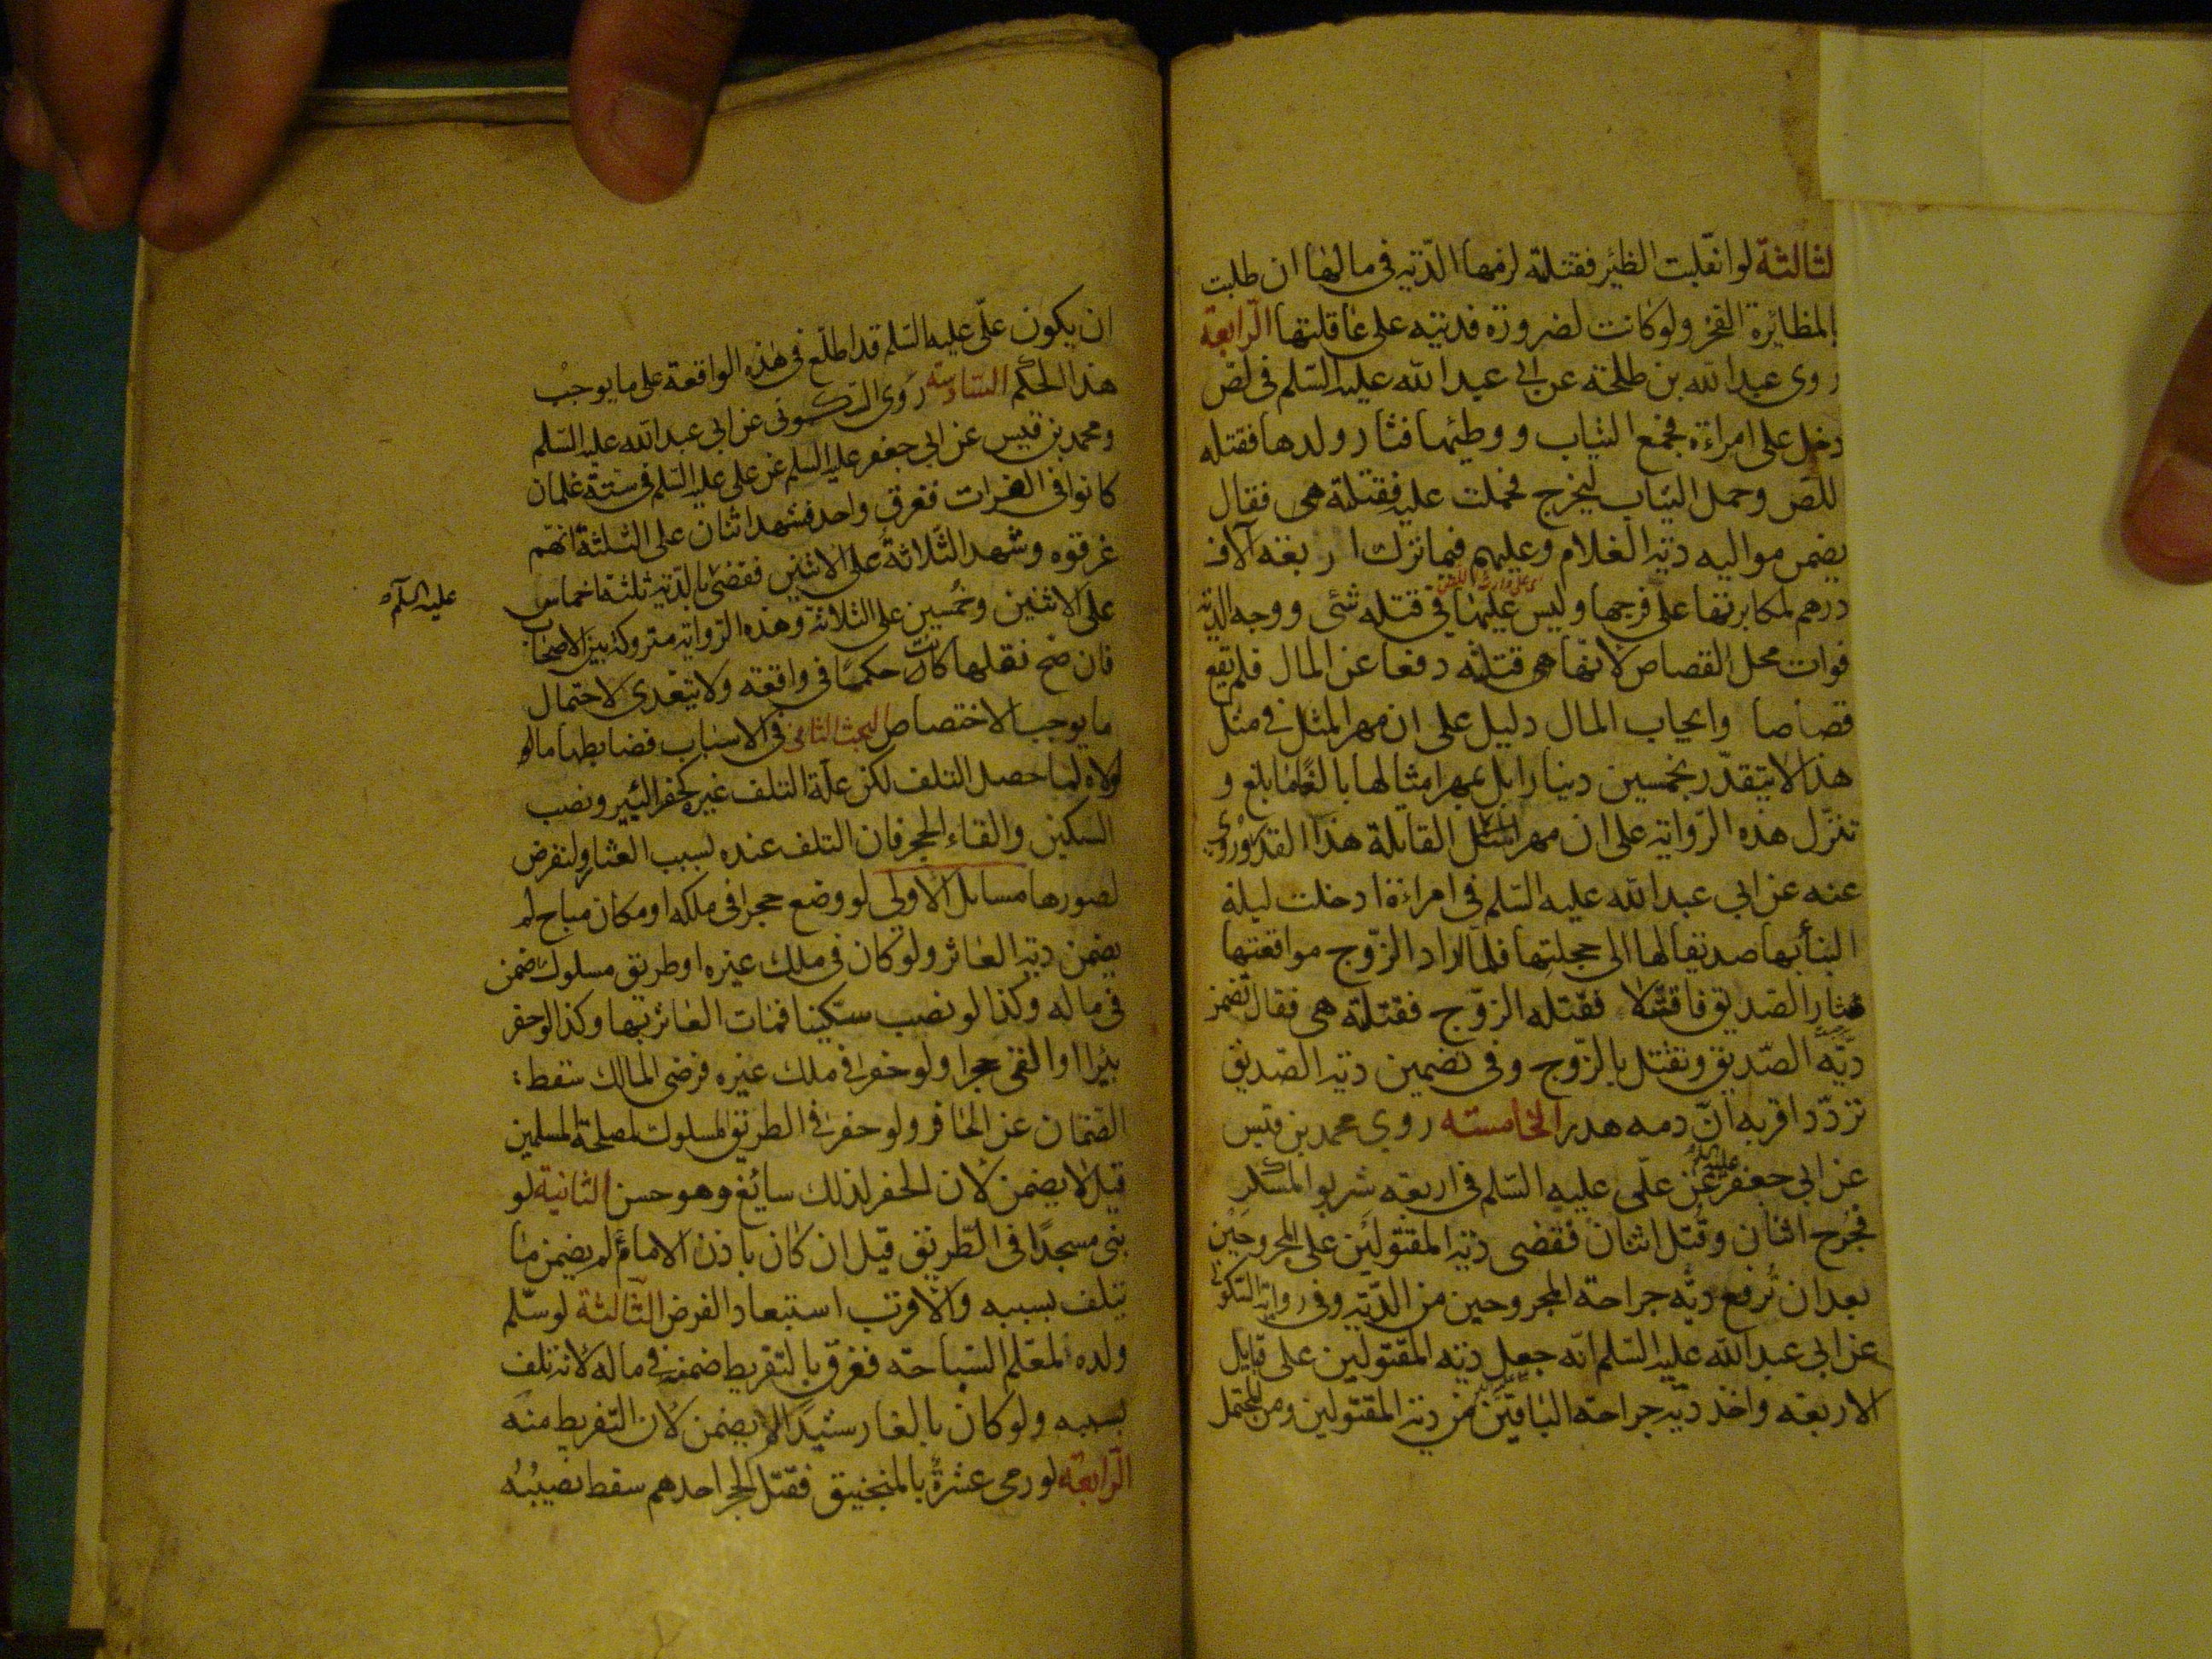 لثالثة لو انقلبت الظئر فقتلته لزمها الدّية فى مالها ان طلبت
بالمظائرة الفخر ولو كانت لضرورة فديته على عاقلتها الرابعة
روى عبد الله بن طلحة عن ابى عبد الله عليه السّلم فى لصّ
دخل على امراءة فجمع الثياب ووطيها فثار ولدها فقتله
للص وحمل الثياب ليخرج فحملت عليه فقتلته هى فقال
يضمن مواليه دية الغلام وعليهم فيما ترك اربعة آلاف
درهم لمكابرتها على فرجها وليس عليها فى قتله شئ ووجه الدية
فوات محل القصاص لانّها هى قتلته دفعا عن المال فلم يقع
قصاصا وايجاب المال دليل على ان مهر المثل فى مثل
هذا لا يتقدّر بخمسين دينارا بل بمهر امثالها بالغًا ما بلغ و
تنزّل هذه الرّواية على ان مهر المثل القاتلة هذا القدر وروى
عنه عن ابى عبد الله عليه السّلم فى امراءة ادخلت ليلة
البنأ بها صديقا لها الى حجلتها فلمّا اراد الزّوج مواقعتها
فثار الصّديق فاقتتلا فقتله الزوّج فقتلته هى فقال تضمن
ديّة الصّديق وتقتل بالزّوج وفى تضمين دية الصّديق
تردّد اقربه انّ دمه هدر الخامسة روى محمد بن قيس
عن ابى جعفر عليه السلم عن علّى عليه السّلم فى اربعة شربوا المسكر
فجُرح اثنان وقُتل اثنان فقضى دية المقتولَين على المجروحَين
بعد ان تُرفع ديّة جراحة المجروحين من الدّية وفى رواية السّكونى
عن ابى عبد الله عليه السّلم انّه جعل دية المقتولين على قبايل
الاربعة واخذ ديّة جراحة الباقيَين من دية المقتولين ومن المحتمل
ان يكون علّى عليه السّلم قد اطلّع فى هذه الواقعة على ما يوجبُ
هذا الحكم السّادسة روى السّكونى عن ابى عبد الله عليه السّلم
ومحمد بن قيس عن ابى جعفر عليه السّلم عن على عليه السّلم فى ستّة غلمان
كانوا فى الفرات فغرق واحد فشهد اثنان على الثلثة انهّم
غرقوه وشهد الثّلاثة على الاثنين فقضى بالدّية ثلثة اخماس
على الاثنين وخُمسين على الثلاثة وهذه الرّواية متروكة بين الاصحاب
عليه السلم
فان صح نقلها كانت حكمًا فى واقعة ولا يتعّدى لاحتمال
ما يوجب الاختصاص البحث الثانى فى الاسباب فضابطها ما لو
لولاه لما حصل التلف لكن علّة التلف غيره كحفر البئير ونصب
السكين والقاء الحجر فان التلف عنده بسبب العثار ولنفرض
لصورها مسايل الاولى لو وضع حجرا فى ملكه او مكان مباح لم
يضمن دية العاثر ولو كان فى ملك غيره او طريق مسلوك ضمن
فى ماله وكذا لو نصب سكّينا فمات العاثر بها وكذا لو حفر
بئرا او القى حجرا ولو حفر فى ملك غيره فرضى المالك سقط
الضمان عن الحافر ولو حفر فى الطريق المسلوك لمصلحة المسلمين
قيل لا يضمن لان الحفر لذلك سايغ وهو حسن الثانية لو
بنى مسجدًا فى الطّريق قيل ان كان باذن الامام لم يضمن ما
يتلف بسببه والاقرب استبعاد الفرض الثالثة لو سلّم
ولده لمعّلم السّباحة فغرق بالتفريط ضمنه فى ماله لانه تلف
بسببه ولو كان بالغا رشيدًا لم يضمن لان التّفريط منه
الرّابعة لو رمى عشرةٌ بالمنجنيق فقتل الحجر احدهم سقط نصيبُهُ